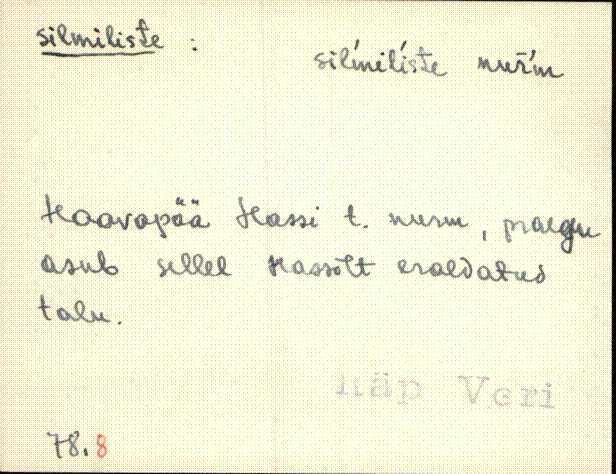 silmiliste :
silmiliste nurm
Haavapää Hassi t. nurm, praegu
asub sellel Hassilt eraldatud
talu.
Räp Veri
78.8